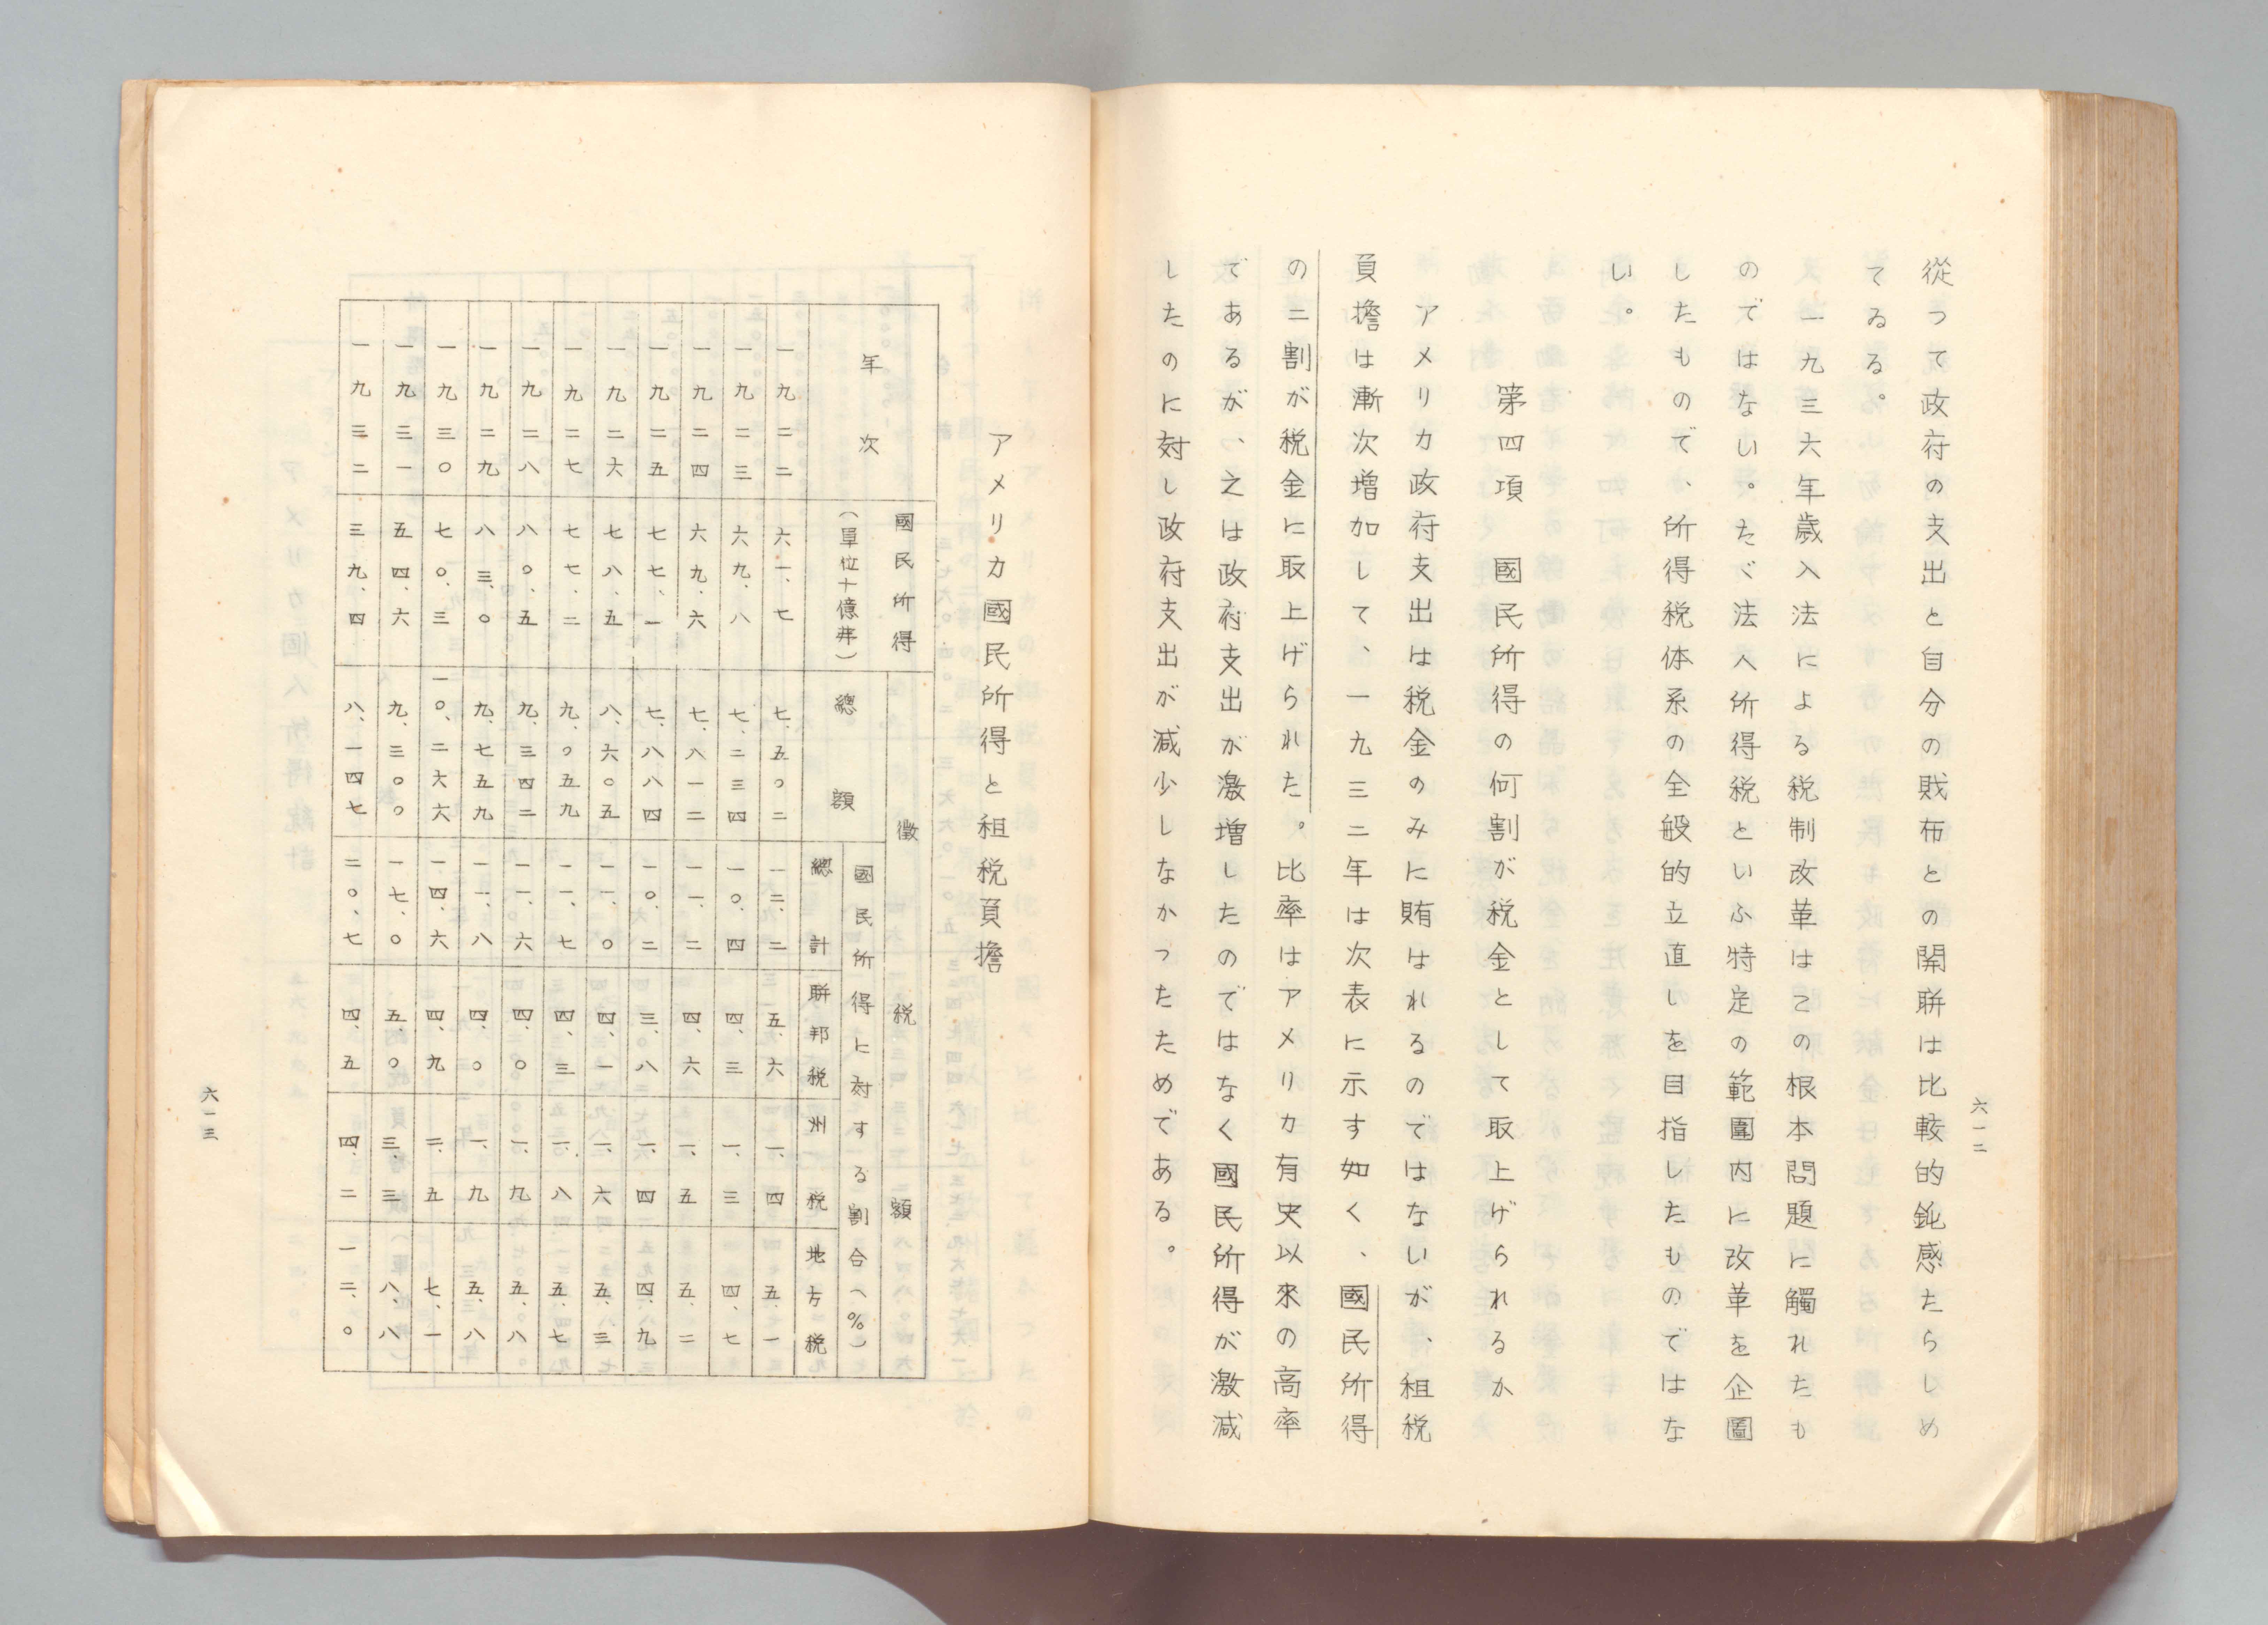 六一二
従つて政府の支出と自分の財布との関聯は比較的鈍感たらしめ
てゐる。
一九三六年歳入法による税制改革はこの根本問題に觸れたも
のではない。たゞ法人所得税といふ特定の範圍内に改革を企圖
したもので、所得税体系の全般的立直しを目指したものではな
い。
第四項　國民所得の何割が税金として取上げられるか
アメリカ政府支出は税金のみに賄はれるのではないが、租税
負擔は漸次増加して、一九三二年は次表に示す如く、國民所得
の二割が税金に取上げられた。比率はアメリカ有史以來の高率
であるが、之は政府支出が激増したのではなく國民所得が激減
したのに対し政府支出が減少しなかつたためである。
アメリカ國民所得と租税負擔
年次　國民所得（單位十億弗）　徴税額
總額　國民所得に対する割合（％）
總計　聯邦税　州税　地方税
一九二二　六一、七　七、五〇二　一二、二　五、六　一、四　五、一
一九二三　六九、八　七、二三四　一〇、四　四、三　一、三　四、七
一九二四　六九、六　七、八一二　一一、二　四、六　一、五　五、二
一九二五　七七、一　七、八八四　一〇、二　三、八　一、四　四、九
一九二六　七八、五　八、六〇五　一一、〇　四、一　一、六　五、三
一九二七　七七、二　九、〇五九　一一、七　四、三　一、八　五、七
一九二八　八〇、五　九、三四二　一一、六　四、〇　一、九　五、八
一九二九　八三、〇　九、七五九　一一、八　四、〇　一、九　五、八
一九三〇　七〇、三　一〇、二六六　一四、六　四、九　二、五　七、一
一九三一　五四、六　九、三〇〇　一七、〇　五、〇　三、三　八、八
一九三二　三九、四　八、一四七　二〇、七　四、五　四、二　一二、〇
六一三